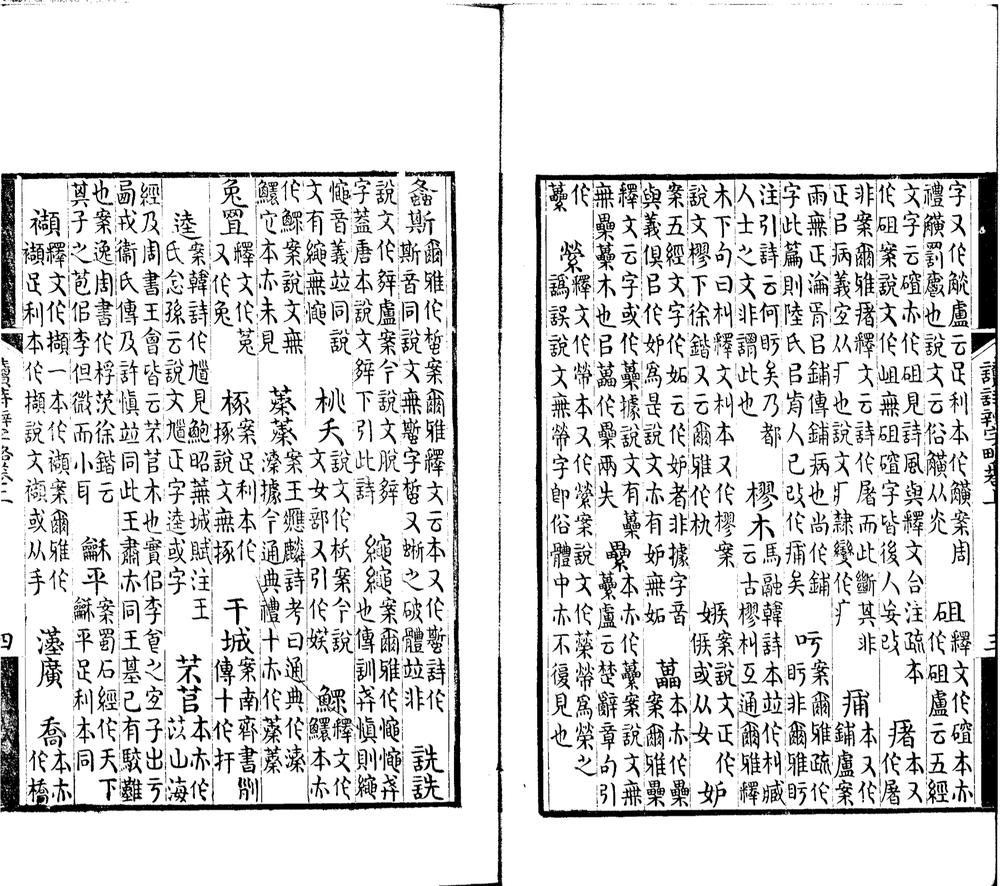 字又作觥盧云足利本作觵案周
禮觵罰爵也說文云俗觵从光
砠
釋文作磪本亦
作砠盧云五經
文字云磪亦作砠見詩風與釋文合注疏本
作砠案說文作岨無砠磪字皆後人妄改
瘏
本又
作屠
非案爾雅瘏釋文云詩作屠而此斷其非
正㠯病義宜从疒也說文疒隸變作疒
痡
本又作
鋪盧案
雨無正淪胥㠯鋪傳鋪病也尚作鋪
字此篇則陸氏㠯前人已改作痡矣
吁
案爾雅疏作
盱非爾雅盱
注引詩云何盱矣乃都
人士之文非謂此也
樛木
馬融韓詩本竝作朻臧
云古樛朻互通爾雅釋
木下句曰朻釋文朻本又作樛案
說文樛下徐鍇又云爾雅作朻
嫉
案說文正作
𠊱或从女
妒
案五經文字作妬云作妒者非據字音
與義俱㠯作妒爲是說文亦有妒無妬
藟
本亦作櫐
案爾雅櫐
釋文云字或作虆據說文有藟
無櫐虆木也㠯藟作櫐兩失
纍
本亦作虆案說文無
虆盧云楚辭章句引
作
虆
縈
釋文作 案說文作縈 爲之
譌誤說文無 字卽俗體中亦不復見也
讀詩辨字略卷上
三
螽斯
爾雅作蜤案爾雅釋文云本又作蟴詩作
斯音同說文無蟴字蜤又蜥之破體竝非
詵詵
說文作𨐔盧案今說文脫𨐔
字蓋唐本說文𨐔下引此詩
繩繩
案爾雅作憴憴葬
也傳訓葬愼則繩
憴音義竝同說
文有繩無憴
桃夭
說文作枖案今說
文女部又引作㛍
鰥
釋文作
鱞本亦
作鰥案說文無
鱞它本亦未見
蓁蓁
案王應麟詩考曰通典作溱
溱據今通典禮十亦作蓁蓁
兔罝
釋文作菟
又作兔
椓
案足利本作
㧻說文無㧻
干城
案南齊書削
傳十作扞
逵
案韓詩作馗見鮑昭蕪城賦注王
氏念孫云說文馗正字逵或字
芣苢
本亦作
苡山海
經及周書王會皆云芣苢木也實佀李食之宜子出亏
西戎衞氏傳及許愼竝同此王肅亦同王基已有駮難
也案逸周書作桴茨徐鍇云
其子之苞佀李但微而小耳
龢平
案蜀石經作天下
龢平足利本同
襭
釋文作擷一本作襭案爾雅作
襭足利本作擷說文襭或从手
漢廣
喬
本亦
作橋
讀詩辨字略卷上
四